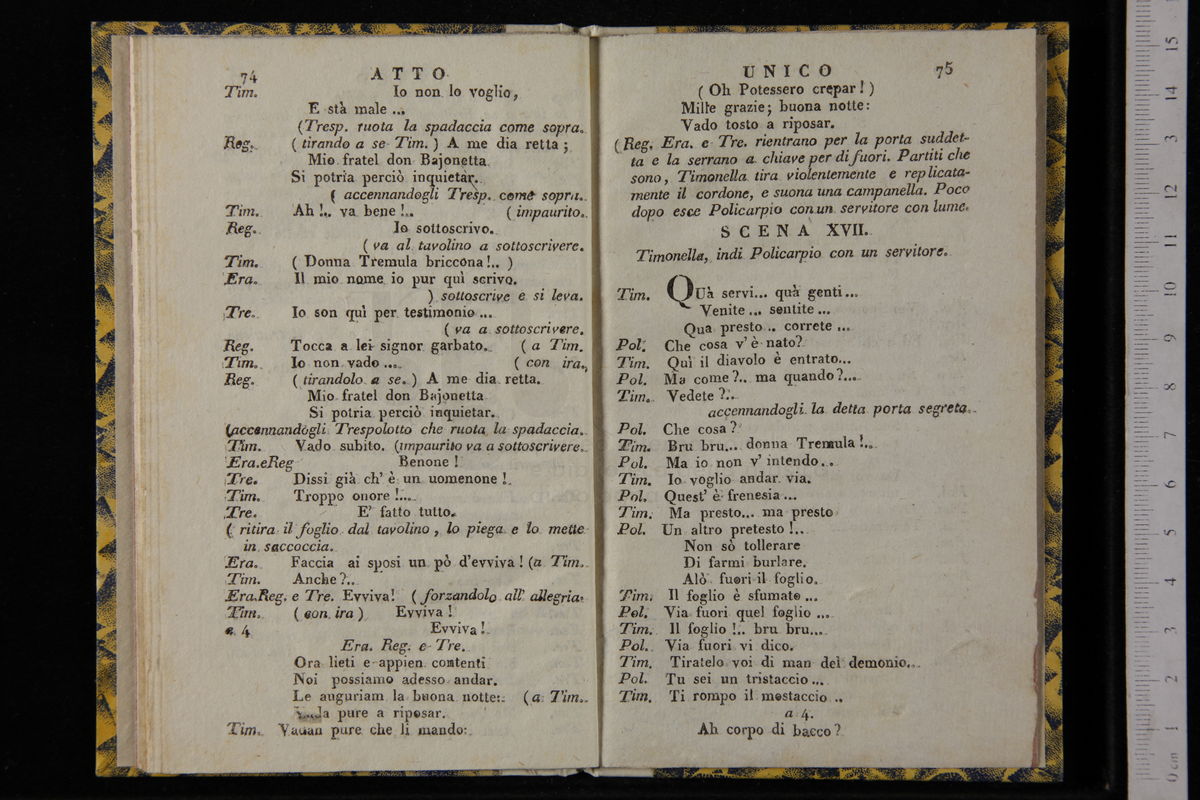 74
ATTO
Tim. Io non lo voglio,
E stà male ...
(Tresp. ruota la spadaccia come sopra.
Reg. ( tirando a se Tim. ) A me dia retta ;
Mio fratel don Bajonetta
Si potria perciò inquietar.
( accennandogli Tresp. come sopra.
Tim. Ah !.. va bene !.. ( impaurito.
Reg. Io sottoscrivo.
( va al tavolino a sottoscrivere.
Tim. ( Donna Tremula briccona !.. )
Era. Il mio nome io pur quì scrivo.
) sottoscrive e si leva.
Tre. Io son quì per testimonio ...
( va a sottoscrivere.
Reg. Tocca a lei signor garbato. ( a Tim.
Tim. Io non vado .... ( con ira.
Reg. ( tirandolo a se. ) A me dia retta.
Mio fratel don Bajonetta
Si potria perciò inquietar.
(accennandogli Trespolotto che ruota la spadaccia.
Tim. Vado subito. (impaurito va a sottoscrivere.
Era.eReg Benone !
Tre. Dissi già ch' è un uomenone !.
Tim. Troppo onore !....
Tre. E' fatto tutto.
( ritira il foglio dal tavolino , lo piega e lo mette
in saccoccia.
Era. Faccia ai sposi un pò d'evviva ! (a Tim.
Tim. Anche ?..
Era.Reg. e Tre. Evviva! ( forzandolo all' allegria.
Tim. ( con ira ) Evviva !
a 4 Evviva !
Era. Reg. e Tre.
Ora lieti e appien contenti
Noi possiamo adesso andar.
Le auguriam la buona notte: ( a Tim.
pure a riposar.
Tim. Vadan pure che li mando:
UNICO
75
( Oh Potessero crepar ! )
Mille grazie; buona notte:
Vado tosto a riposar.
( Reg. Era. e Tre. rientrano per la porta suddet-
ta e la serrano a chiave per di fuori. Partiti che
sono, Timonella tira violentemente e replicata-
mente il cordone, e suona una campanella. Poco
dopo esce Policarpio con un servitore con lume.
SCENA XVII.
Timonella, indi Policarpio con un servitore.
Tim. QUà servi... quà genti ...
Venite ... sentite ...
Qua presto .. correte ...
Pol. Che cosa v' è nato?
Tim. Quì il diavolo è entrato...
Pol. Ma come ?.. ma quando ?....
Tim. Vedete ?..
accennandogli la detta porta segreta.
Pol. Che cosa ?
Tim. Bru bru... donna Tremula !..
Pol. Ma io non v' intendo..
Tim. Io voglio andar via.
Pol. Quest' è frenesia ...
Tim. Ma presto... ma presto
Pol. Un altro pretesto !..
Non sò tollerare
Di farmi burlare.
Alò fuori il foglio.
Tim. Il foglio è sfumato ...
Pol. Via fuori quel foglio ...
Tim. Il foglio !.. bru bru...
Pol. Via fuori vi dico.
Tim. Tiratelo voi di man del demonio...
Pol. Tu sei un tristaccio ...
Tim. Ti rompo il mostaccio ..
a 4.
Ah corpo di bacco ?